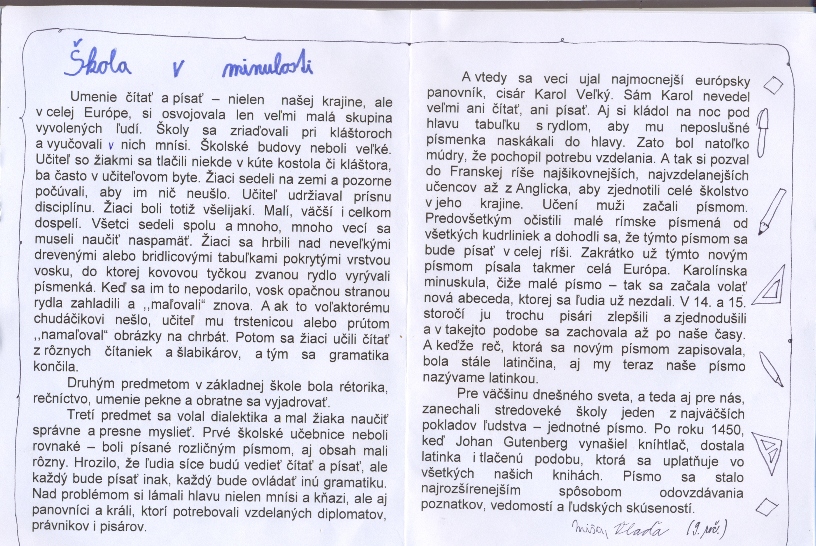 Škola v minulosti
Umenie čítať a písať – nielen našej krajine, ale
v celej Európe, si osvojovala len veľmi malá skupina
vyvolených ľudí. Školy sa zriaďovali pri kláštoroch
a vyučovali v nich mnísi. Školské budovy neboli veľké.
Učiteľ so žiakmi sa tlačili niekde v kúte kostola či kláštora,
ba často v učiteľovom byte. Žiaci sedeli na zemi a pozorne
počúvali, aby im nič neušlo. Učiteľ udržiaval prísnu
disciplínu. Žiaci boli totiž všelijakí. Malí, väčší i celkom
dospelí. Všetci sedeli spolu a mnoho, mnoho vecí sa
museli naučiť naspamäť. Žiaci sa hrbili nad neveľkými
drevenými alebo bridlicovými tabuľkami pokrytými vrstvou
vosku, do ktorej kovovou tyčkou zvanou rydlo vyrývali
písmenká. Keď sa im to nepodarilo, vosk opačnou stranou
rydla zahladili a ,,maľovali” znova. A ak to voľaktorému
chudáčikovi nešlo, učiteľ mu trstenicou alebo prútom
,,namaľoval” obrázky na chrbát. Potom sa žiaci učili čítať
z rôznych čítaniek a šlabikárov, a tým sa gramatika
končila.
Druhým predmetom v základnej škole bola rétorika,
rečníctvo, umenie pekne a obratne sa vyjadrovať.
Tretí predmet sa volal dialektika a mal žiaka naučiť
správne a presne myslieť. Prvé školské učebnice neboli
rovnaké – boli písané rozličným písmom, aj obsah mali
rôzny. Hrozilo, že ľudia síce budú vedieť čítať a písať, ale
každý bude písať inak, každý bude ovládať inú gramatiku.
Nad problémom si lámali hlavu nielen mnísi a kňazi, ale aj
panovníci a králi, ktorí potrebovali vzdelaných diplomatov,
právnikov i pisárov.
A vtedy sa veci ujal najmocnejší európsky
panovník, cisár Karol Veľký. Sám Karol nevedel
veľmi ani čítať, ani písať. Aj si kládol na noc pod
hlavu tabuľku s rydlom, aby mu neposlušné
písmenka naskákali do hlavy. Zato bol natoľko
múdry, že pochopil potrebu vzdelania. A tak si pozval
do Franskej ríše najšikovnejších, najvzdelanejších
učencov až z Anglicka, aby zjednotili celé školstvo
v jeho krajine. Učení muži začali písmom.
Predovšetkým očistili malé rímske písmená od
všetkých kudrliniek a dohodli sa, že týmto písmom sa
bude písať v celej ríši. Zakrátko už týmto novým
písmom písala takmer celá Európa. Karolínska
minuskula, čiže malé písmo – tak sa začala volať
nová abeceda, ktorej sa ľudia už nezdali. V 14. a 15.
storočí ju trochu pisári zlepšili a zjednodušili
a v takejto podobe sa zachovala až po naše časy.
A keďže reč, ktorá sa novým písmom zapisovala,
bola stále latinčina, aj my teraz naše písmo
nazývame latinkou.
Pre väčšinu dnešného sveta, a teda aj pre nás,
zanechali stredoveké školy jeden z najväčších
pokladov ľudstva – jednotné písmo. Po roku 1450,
keď Johan Gutenberg vynašiel kníhtlač, dostala
latinka i tlačenú podobu, ktorá sa uplatňuje vo
všetkých našich knihách. Písmo sa stalo
najrozšírenejším spôsobom odovzdávania
poznatkov, vedomostí a ľudských skúseností.
Vlaďa (9. roč.)